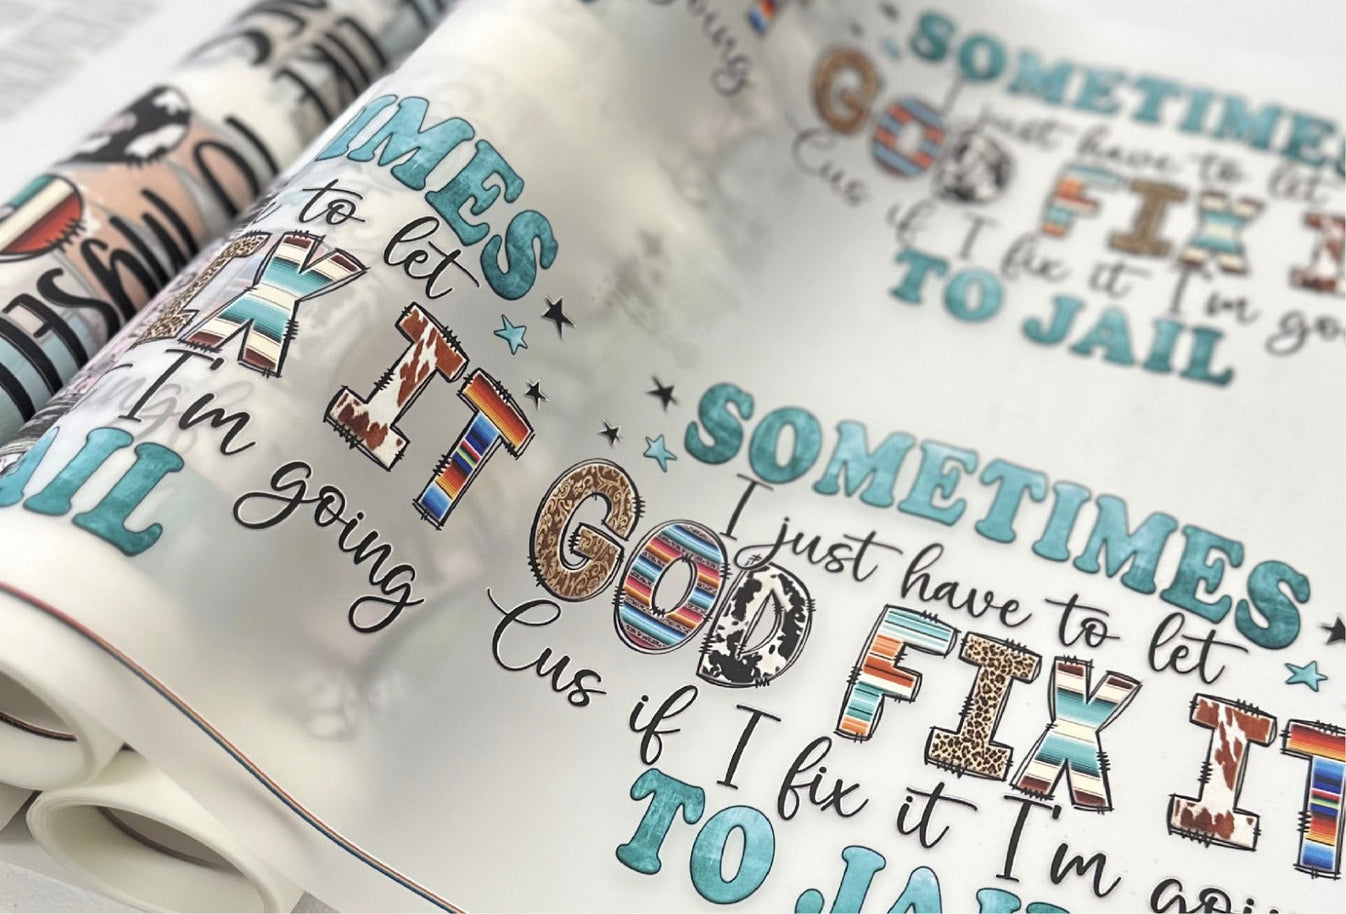 SOMETIMES
I just have to let
GOD FIX I
Cus if I fix it I'm go
TO JAIL
going
IMES
to let
IX IT
I'm going
AIL
SOMETIMES
I just have to let
GOD FIX IT
Cus if I fix it I'm goi
TO JA